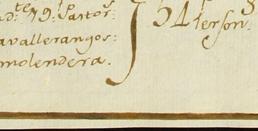 d.te 79. Pastos:
avallerangos:
molendera.
54 Person.s